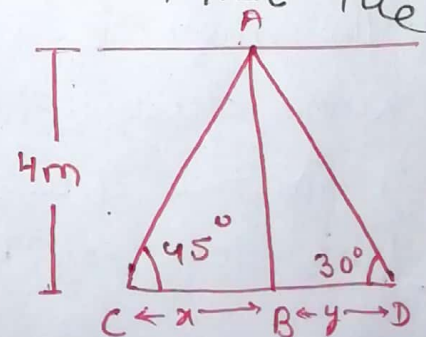 A
4m
45°
30°
C ← x → B ← y → D